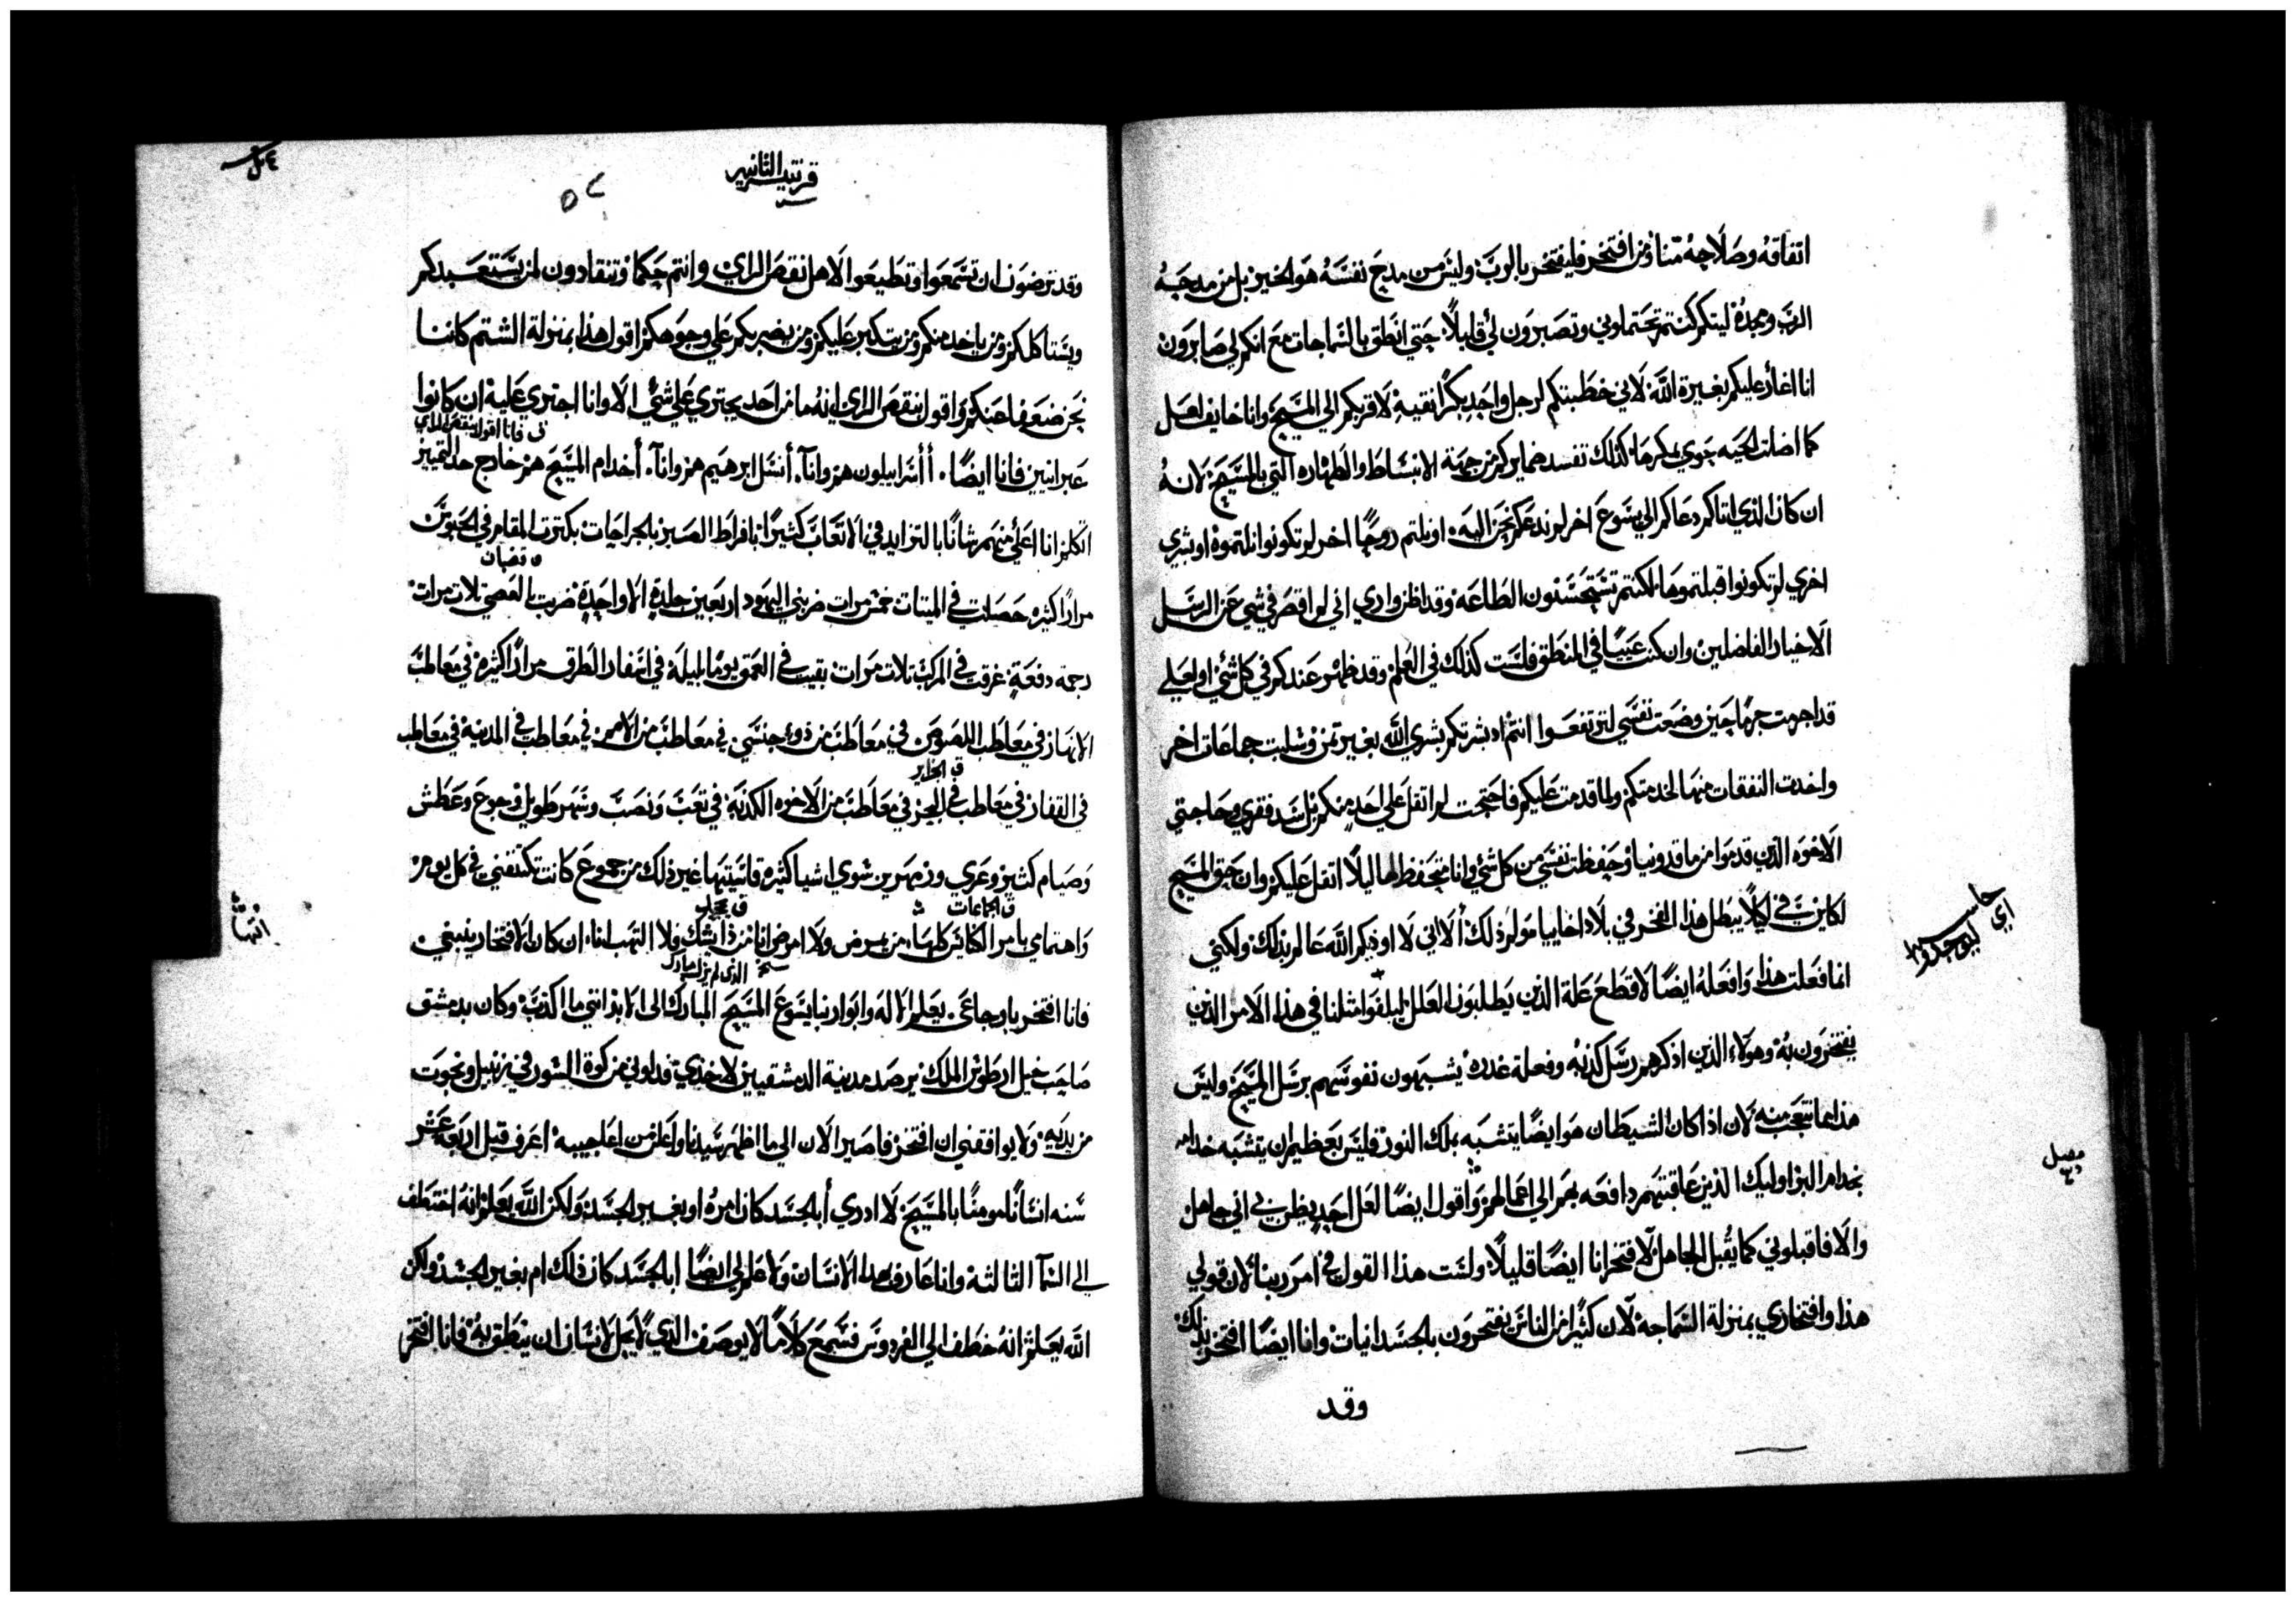 اتفاقه وصلاحه منا ومن افتخر فليفتخر بالرب وليس من مدح نفسه هو الخير بل من مدحه
الرب ومجده ليتكم كنتم تحتملوني وتصبرون لي قليلا حتي انطق بالسماجات مع انكم لي صابرون
انا اغار عليكم بغيرة الله لاني خطبتكم لرجل واحد بكرا نقية لاقربكم الي المسيح وانا خايف لعل
كما اضلت الحيه حوي بمكرها كذلك تفسد ضمايركم من جهة الانبساط والطهاره التي بالمسيح لانه
ان كان الذي اتاكم دعاكم الي يسوع اخر لم ندعكم نحن اليه او نلتم روحا اخر لم تكونوا نلتموه او بشري
اخري لم تكونوا قبلتموها لكنتم تستحسنون الطاعه وقد اظن واري اني لم اقصر في شي عن الرسل
الاخيار الفاضلين وان كنت عييا في المنطق فلست كذلك في العلم وقد ظهر عندكم في كل شي او لعلي
قد اجرمت جرما حين وضعت نفسي لترتفعوا انتم اذ بشرتكم بشري الله بغير ثمن وسلبت جماعات اخر
واخدت النفقات منها لخدمتكم ولما قدمت عليكم فاحتجت لم اتقل علي احد منكم بل سد فقري وحاجتي
الاخوه الذين قدموا من ماقدونيا وحفظت نفسي من كل شي وانا متحفظ لها ليلا اتقل عليكم وان حق المسيح
لكاين في لكيلا يبطل هذا الفخر في بلاد اخاييا ولم ذلك الاني لا اودكم الله عالم بذلك ولكني
انما فعلت هذا وافعله ايضا لاقطع علة الذين يطلبون العلل ليلفوا مثلنا في هذا الامر الذين
يفتخرون به وهولاء الذين اذكر هم رسل كذبه وفعلة غدره يشبهون نفوسهم برسل المسيح وليس
هذا مما نتعجب منه لان اذا كان الشيطان هو ايضا يتشبه بملك النور فليس بعظيم ان يتشبه خدامه
بخدام البر اوليك الذين عاقبتهم دافعه بهم الي اعمالهم واقول ايضا لعل احد يظن بي اني جاهل
والا فاقبلوني كما يقبل الجاهل لافتخر انا ايضا قليلا ولست هذا القول في امر ربنا لان قولي
هذا وافتخاري بمنزلة السماجه لان كثيرا من الناس يفتخرون بالجسدانيات وانا ايضا افتخر بذلك
وقد
قرنتيه الثانيه
وقد ترضون ان تسمعوا وتطيعوا لاهل نقص الراي وانتم حكما وتنقادون لمن يستعبدكم
ويستاكلكم ومن ياخد منكم ومن يتكبر عليكم ومن يضربكم علي وجوهكم اقول هذا بمنزلة الشتم كاننا
نحن ضعفا عنكم واقول بنقص الراي انه ما من احد يجتري علي شي الا وانا اجتري عليه ان كانوا
فانا اقول بنقص الراي
عبرانيين فانا ايضا. أ أسراييليون هم وانا. أنسل ابرهيم هم وانا. أخدام المسيح هم خارج حد التمييز
اتكلم انا اعلي منهم شانا بالتزايد في الاتعاب كثيرا بافراط الصبر بالجراحات بكترت المقام في الحبوس
ق قضبان
مرارا كثيره حصلت في الميتات خمس مرات ضربني اليهود اربعين جلدة الا واحدة ضربت بالعصي تلات مرات
رجمة دفعة غرقت في المركب تلات مرات بقيت في العمق يوما بليله في اسفار الطرق مرارا كثيره في معاطب
الانهار في معاطب اللصوص في معاطب من ذوي جنسي في معاطب من الامم في معاطب في المدينه في معاطب
ق الجزاير
في القفار في معاطب في البحر في معاطب من الاخوه الكدبة في تعب ونصب وسهر طويل وجوع وعطش
وصيام كثير وعري وزمهرير سوي اشيا كثيره قاسيتها غير ذلك من جموع كانت تكتنفني في كل يوم
ق الجماعات
واهتمامي بامر الكنايس كلها من يمرض ولا امرض انا من ذا يشك فلا التهب انا ان كان الافتخار ينبغي
الذي لم يزل مبارك
فانا افتخر باوجاعي. يعلم الاله وابو ربنا يسوع المسيح المبارك الي الابد انني ما اكذب وكان بدمشق
صاحب خيل ارطوس الملك يرصد مدينة الدمشقيين لاخدي فدلوني من كوة السور في زنبيل ونجوت
من يديه ولا يوافقني ان افتخر فاصير الان الي ما اظهر سيدنا واعلن من اعاجيبه اعرف قبل اربعة عشر
سنه انسانا مومنا بالمسيح لا ادري أبالجسد كان امره او بغير الجسد ولكن الله يعلم انه اختطف
الي السما الثالثة وانا عارف بهذا الانسان ولا علم لي ايضا ابالجسد كان ذلك ام بغير الجسد ولكن
الله يعلم انه خطف الي الفردوس فسمع كلاما لا يوصف الذي لا يحل لانسان ان ينطق به فانا افتخر